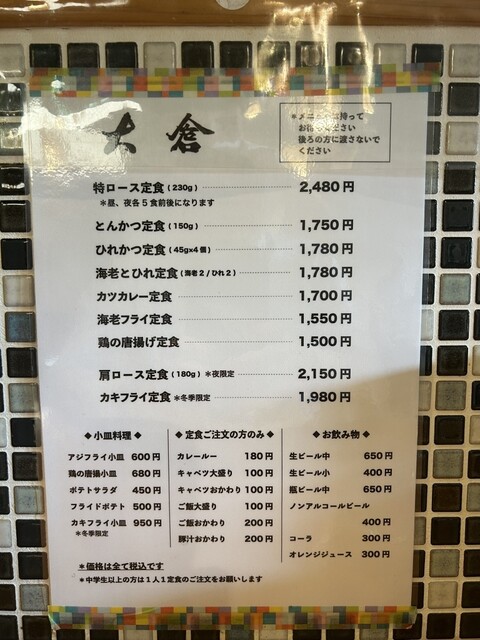 大倉
*メニューは持って
お待ちください
後ろの方に渡さないで
ください
特ロース定食 (230g) 2,480円
*昼、夜各5食前後になります
とんかつ定食 (150g) 1,750円
ひれかつ定食 (45g×4個) 1,780円
海老とひれ定食 (海老2/ひれ2) 1,780円
カツカレー定食 1,700円
海老フライ定食 1,550円
鶏の唐揚げ定食 1,500円
肩ロース定食 (180g) *夜限定 2,150円
カキフライ定食 *冬季限定 1,980円
◆小皿料理◆
アジフライ小皿 600円
鶏の唐揚小皿 680円
ポテトサラダ 450円
フライドポテト 500円
カキフライ小皿 950円
*冬季限定
◆定食ご注文の方のみ◆
カレールー 180円
キャベツ大盛り 100円
キャベツおかわり 100円
ご飯大盛り 100円
ご飯おかわり 200円
豚汁おかわり 200円
◆お飲み物◆
生ビール中 650円
生ビール小 400円
瓶ビール中 650円
ノンアルコールビール
400円
コーラ 300円
オレンジジュース 300円
*価格は全て税込です
*中学生以上の方は1人1定食のご注文をお願いします